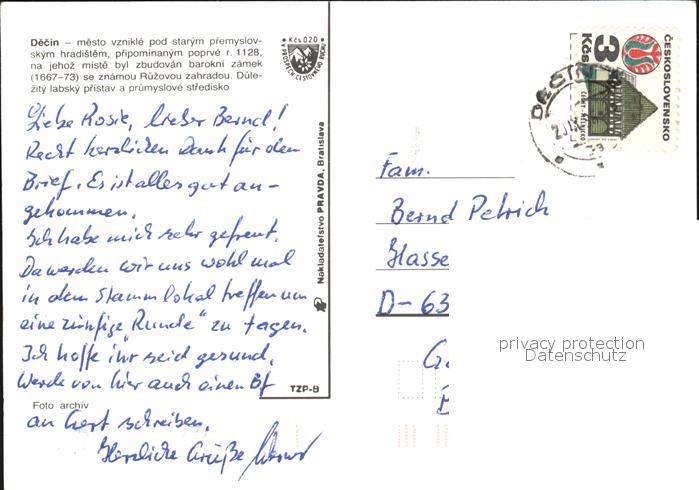 Děčín – město vzniklé pod starým přemyslov-
ským hradištěm, připomínaným poprvé r. 1128,
na jehož místě byl zbudován barokní zámek
(1667–73) se známou Růžovou zahradou. Důle-
žitý labský přístav a průmyslové středisko
Kčs 0,20
V PROSPĚCH CESTOVNÉHO RUCHU
Liebe Rosie, lieber Bernd!
Recht herzlichen Dank für den
Brief. Es ist alles gut an-
gekommen.
Ich habe mich sehr gefreut.
Da werden wir uns wohl mal
in dem Stammlokal treffen um
eine zünftige "Runde" zu tagen.
Ich hoffe ihr seid gesund.
Werde von hier auch einen Bf
an Gert schreiben.
Herzliche Grüße
Foto archív
Nakladateľstvo PRAVDA, Bratislava
TZP-8
ČESKOSLOVENSKO
3 Kčs
DĚČÍN
Fam.
Bernd Petrich
Hasse
D-63
privacy protection
Datenschutz